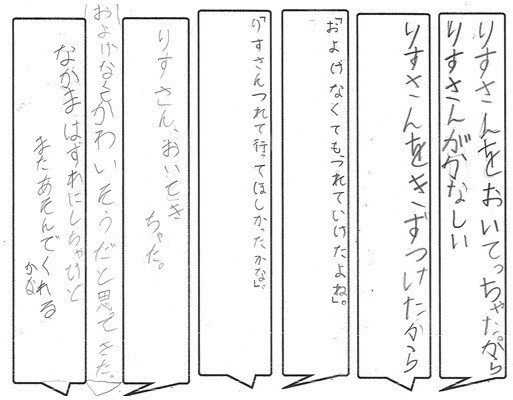 りすさんをおいてっちゃたから
りすさんがかなしい
りすさんをきずつけたから
「およげなくても、つれていけたよね」。
「りすさんつれて行ってほしかったかな」。
りすさん、おいてき
ちゃた。
かわいそうだと思てきた。
なかまはずれにしちゃいと
またあそんでくれる
かな